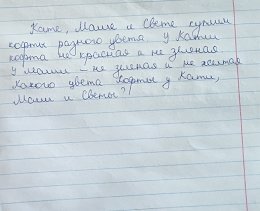 Кате, Маше и Свете купили
кофты разного цвета У Кати
кофта не красная и не зеленая
У Маши – не зеленая и не желтая
Какого цвета кофты у Кати,
Маши и Светы?